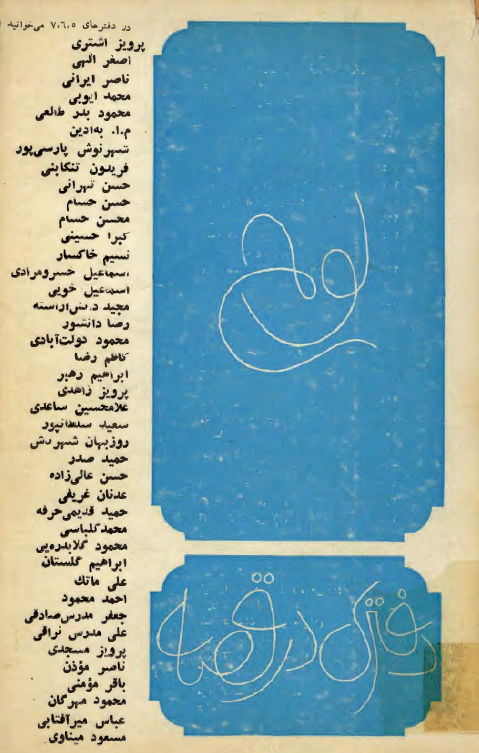 در دفترهای ۷،۶،۵ می‌خوانید
پرویز اشتری
اصغر الهی
ناصر ایرانی
محمد ایوبی
محمود بدر طالعی
م.ا. به‌آذین
شهرنوش پارسی‌پور
فریدون تنکابنی
حسن تهرانی
حسن حسام
محسن حسام
کبرا حسینی
نسیم خاکسار
اسماعیل خسرومرادی
اسماعیل خویی
مجید د.ش‌آراسته
رضا دانشور
محمود دولت‌آبادی
کاظم رضا
ابراهیم رهبر
پرویز زاهدی
غلامحسین ساعدی
سعید سلطانپور
روزبهان شهر‌دش
حمید صدر
حسن عالی‌زاده
عدنان غریفی
حمید قدیمی‌حرفه
محمد کلباسی
محمود گلابدره‌یی
ابراهیم گلستان
علی ماتك
احمد محمود
جعفر مدرس‌صادقی
علی مدرس نراقی
پرویز مسجدی
ناصر مؤذن
باقر مؤمنی
محمود مهرگان
عباس میرآفتابی
مسعود میناوی
لوح
دفتری در قصه